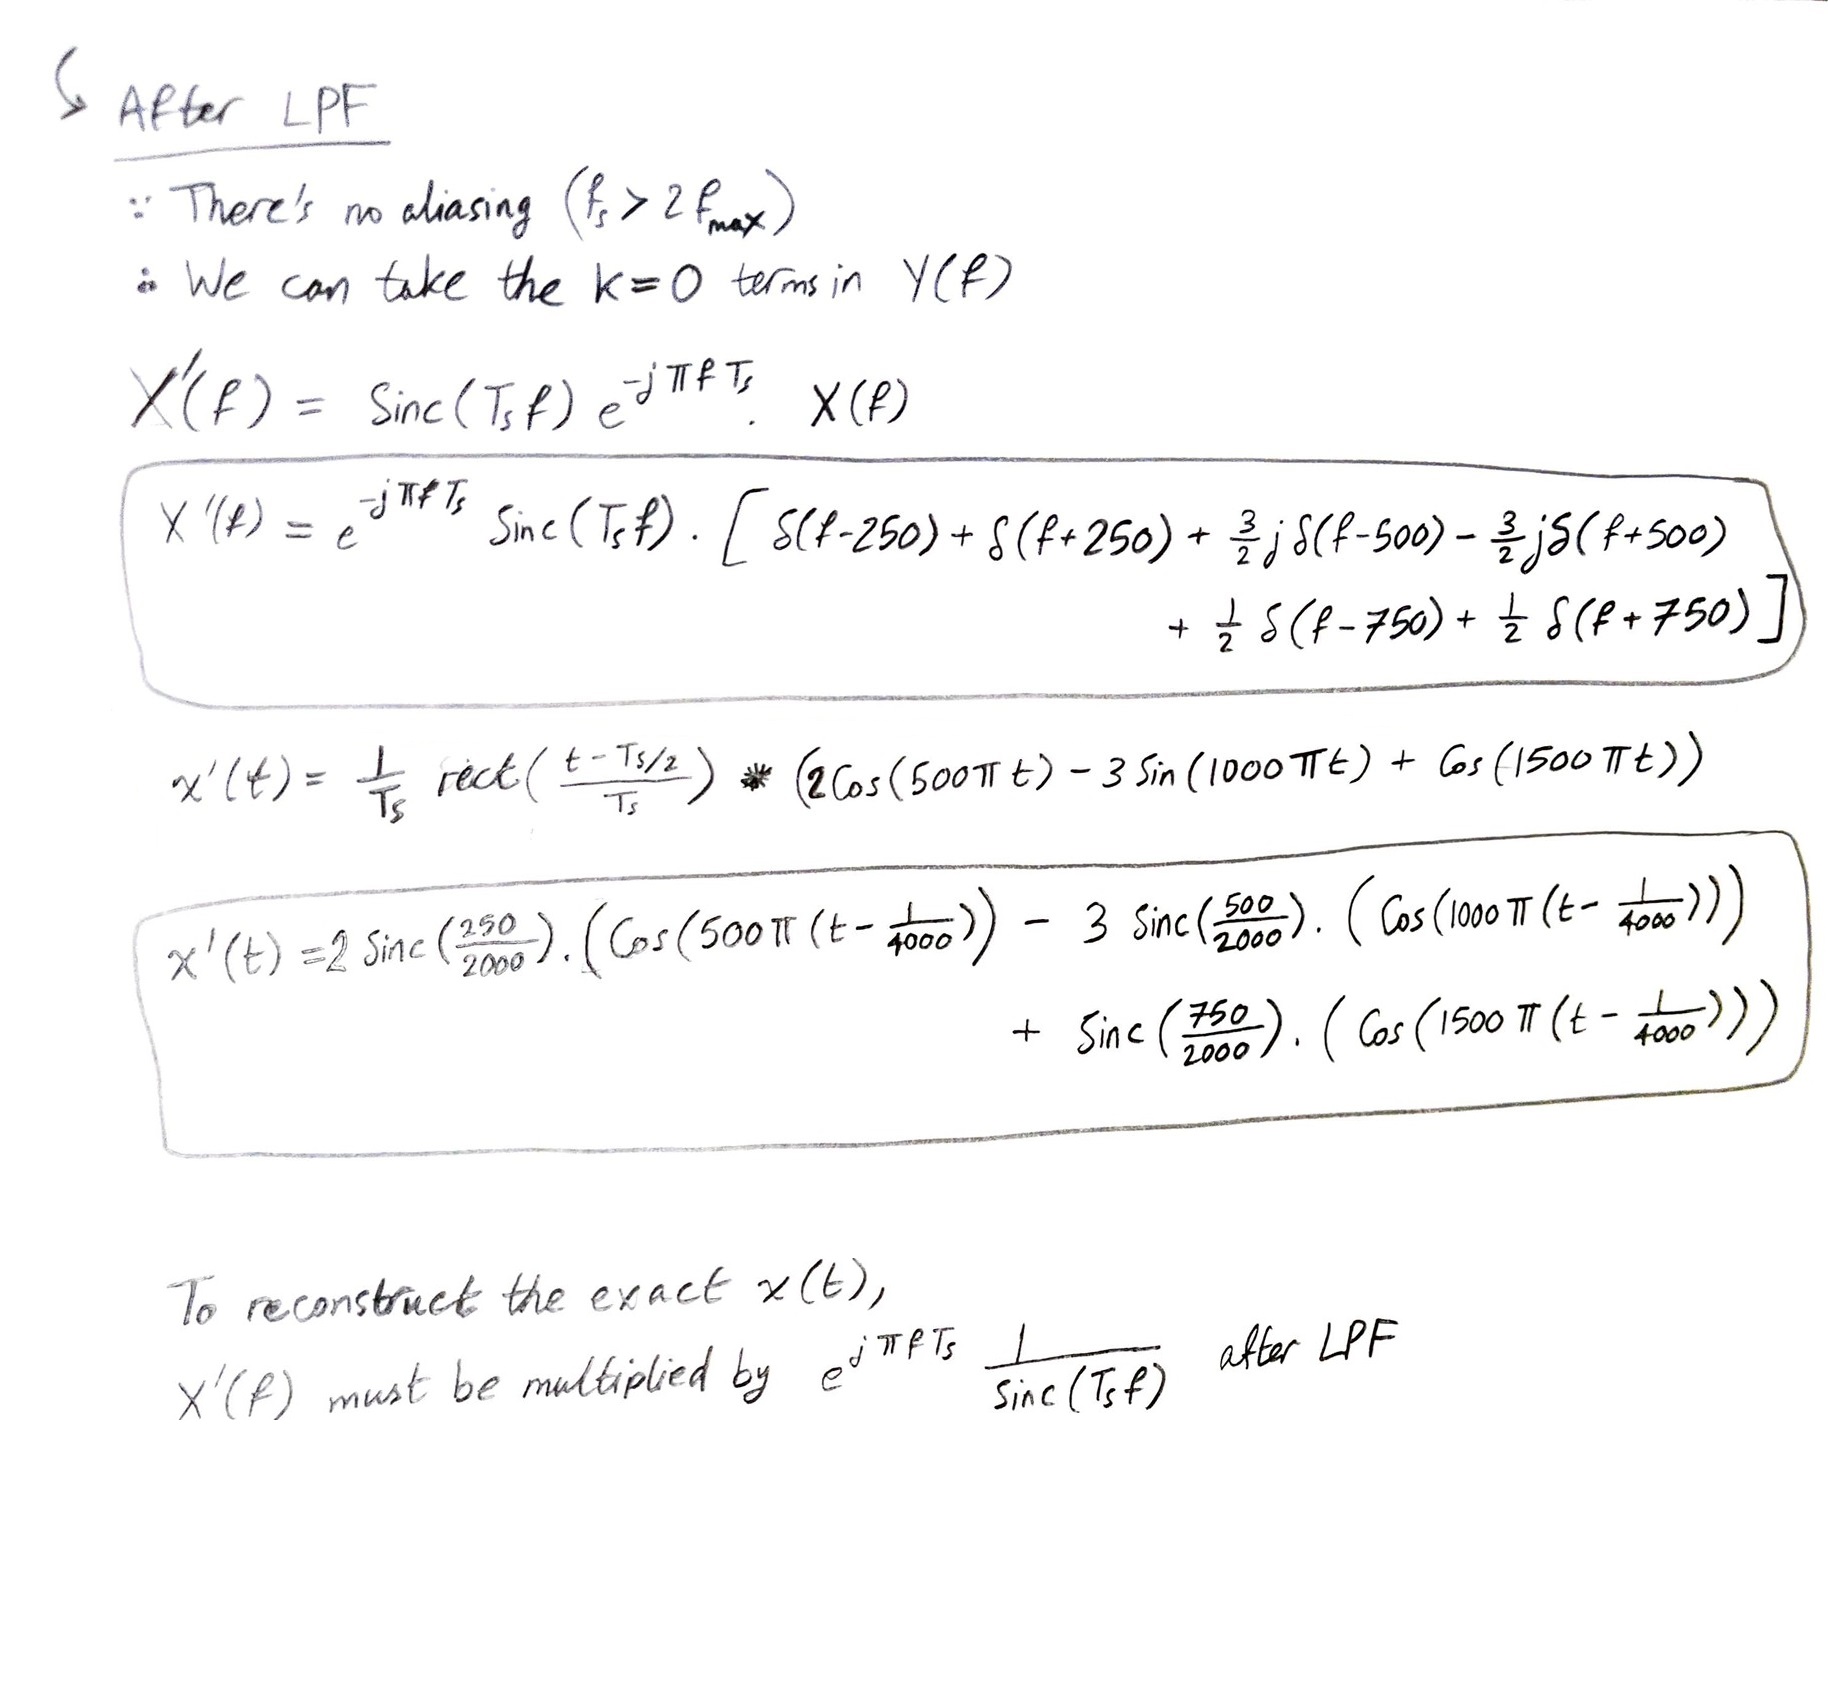 After LPF
∵ There's no aliasing (fs > 2 fmax)
∴ We can take the k=0 terms in Y(f)
X'(f) = Sinc(Ts f) e^{-jπfTs} . X(f)
X'(f) = e^{-jπfTs} Sinc(Ts f) . [ δ(f-250) + δ(f+250) + 3/2 j δ(f-500) - 3/2 j δ(f+500)
+ 1/2 δ(f-750) + 1/2 δ(f+750) ]
x'(t) = 1/Ts rect( (t-Ts/2)/Ts ) * (2 Cos(500πt) - 3 Sin(1000πt) + Cos(1500πt))
x'(t) = 2 Sinc(250/2000) . (Cos(500π(t - 1/4000)) - 3 Sinc(500/2000) . (Cos(1000π(t - 1/4000)))
+ Sinc(750/2000) . (Cos(1500π(t - 1/4000)))
To reconstruct the exact x(t),
X'(f) must be multiplied by e^{jπfTs} 1/Sinc(Ts f) after LPF